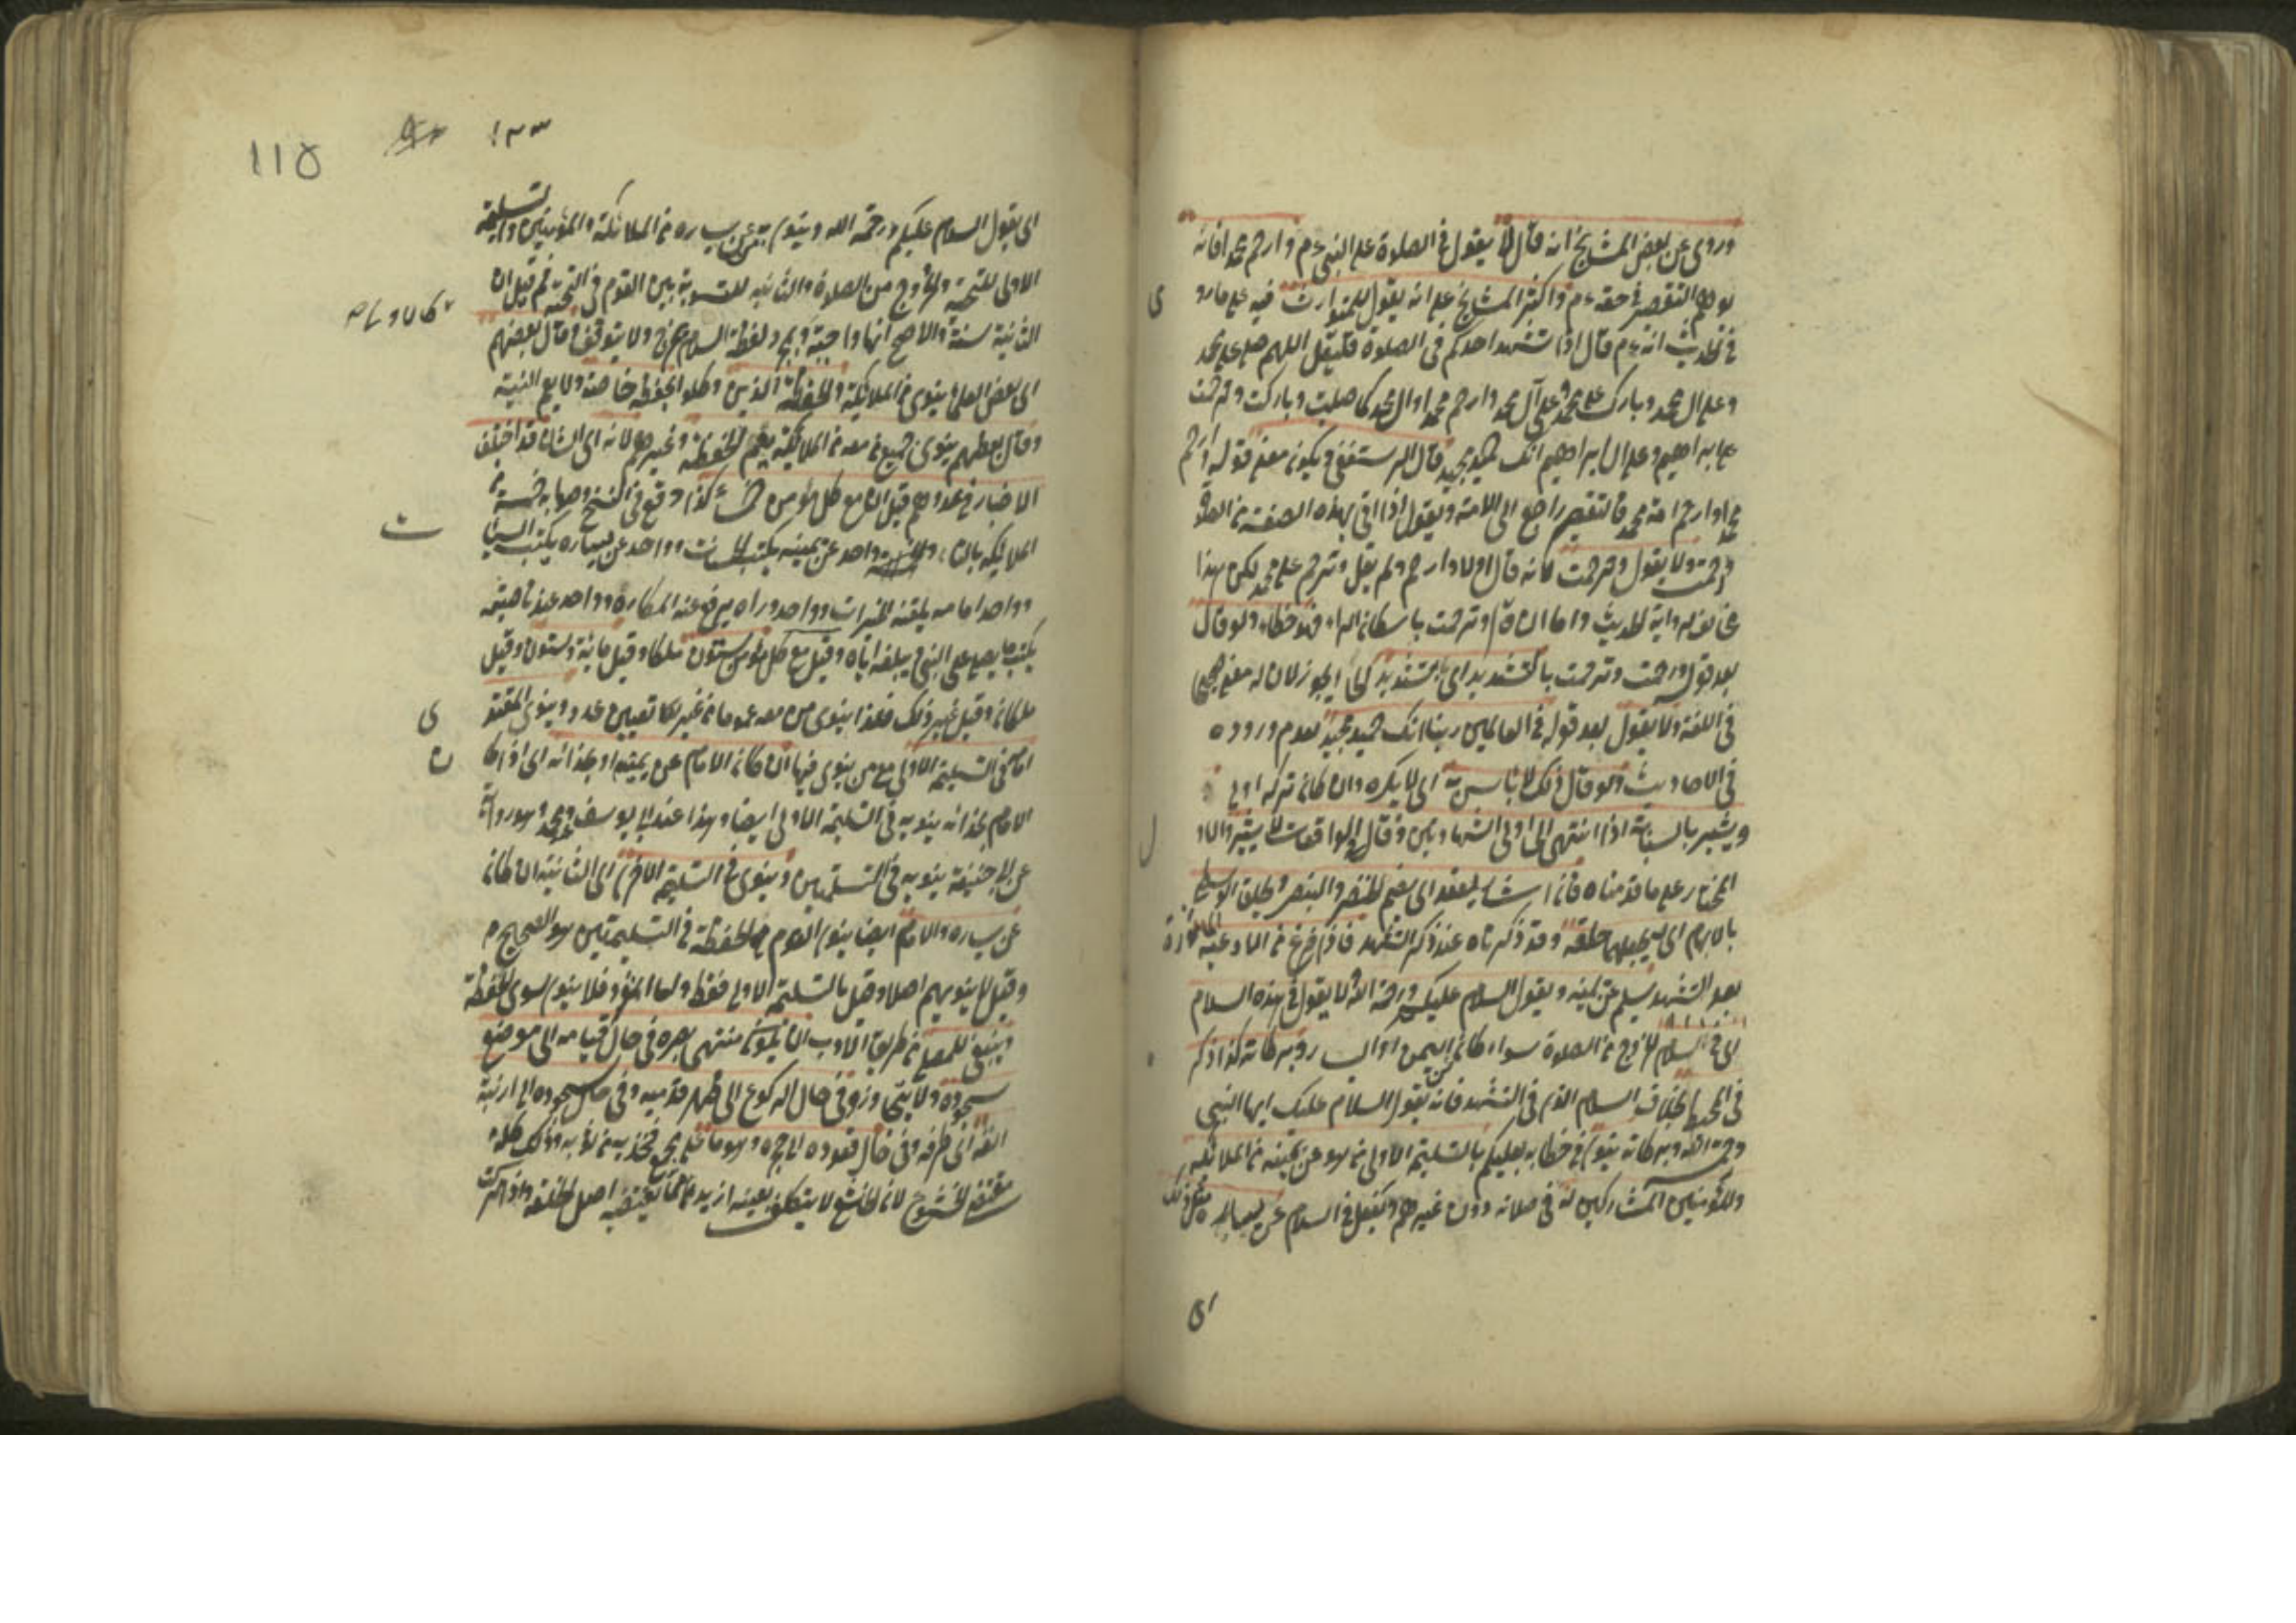 وروى عن بعض المشايخ انه قال لا يقول في الصلوة على النبي عم وارحم محمدا فانه
يوهم التقصير في حقه عم واكثر المشايخ على انه يقول للمتوارث فيه على ما رو
في الحديث انه عم قال اذا تشهد احدكم في الصلوة فليقل اللهم صل على محمد
وعلى ال محمد وبارك على محمد وعلى آل محمد وارحم محمدا وال محمد كما صليت وباركت وترحمت
على ابراهيم وعلى ال ابراهيم انك حميد مجيد قال الرستغفني ويكون معنى قوله ارحم
محمدا وارحم امة محمد فالتقصير راجع الى الامة ويقول اذا اتى بهذه الصفة من الصلوة
ورحمت ولا يقول وترحمت لانه قال اولا وارحم ولم يقل وترحم على محمد لكن هذا
مخالف لرواية الحديث واما ان قال وترحمت باسكان الراء فهو خطاء ولو قال
بعد قوله ورحمت وترحمت بالتشديد اى بتشديد الحاء يجوز لان له معنى صحيحا
في اللغة ولا يقول بعد قوله في العالمين ربنا انك حميد مجيد لعدم وروده
في الاحاديث ولو قال ذلك لا باس به اى لا يكره وان كان تركه اولى
ويشير بالسبابة اذا انتهى الى اولى الشهادتين وقال في الواقعات لا يشير والاو
المختار على ما قدمناه فان اشار يعقد اى يضم الخنصر والبنصر ويحلق الوسطى
بالابهام اى يجعلهما حلقة وقد ذكرناه عند ذكر التشهد فاذا فرغ من الادعية
بعد التشهد يسلم عن يمينه ويقول السلام عليكم ورحمة الله ولا يقول في هذه السلام
اى في السلام للخروج من الصلوة سواء كان عن اليمين او اليسار وبركاته كذا ذكر
في المحيط بخلاف السلام الذى في التشهد فانه يقول السلام عليك ايها النبي
ورحمة الله وبركاته وينوى في خطابه بعليكم بالتسليمة الاولى من هو عن يمينه من الملائكة
والمؤمنين المشاركين له في صلاته دون غيرهم ويفعل في السلام عن يساره مثل ذلك
اى
١٢٣
115
اى يقول السلام عليكم ورحمة الله وينوى بمن عن يساره من الملائكة والمؤمنين والتسليمة
الاولى للتحية والخروج من الصلاة والثانية للتسوية بين القوم في التحية ثم قيل ان
الثانية سنة والاصح انها واجبة وبمجرد لفظ السلام يخرج ولا يتوقف وقال بعضهم
اى بعض العلماء ينوى من الملائكة الحفظة الذين وكلوا بحفظه خاصة ولا يعم النية
وقال بعضهم ينوى جميع من معه من الملائكة يعم الحفظة وغيرهم لانه اى الشان قد اختلف
الاخبار في عددهم قيل ان مع كل مؤمن خمسة كذا وقع في النسخ وصوابه خمس من
الملائكة بالتاء واحد عن يمينه يكتب الحسنات وواحد عن يساره يكتب السيئات
وواحد امامه يلقنه الخيرات وواحد وراه يدفع عنه المكاره وواحد عند ناصيته
يكتب ما يصلى على النبي يبلغه اياه وقيل مع كل مؤمن ستون ملكا وقيل مائة وستون وقيل
ملكان وقيل غير ذلك فلهذا ينوى من معه عموما من غير تعيين عدد وينوى المقتد
امامه في التسليمة الاولى مع من ينوى فيها ان كان الامام عن يمينه او بحذائه اى اذا كا
الامام بحذائه ينويه في التسليمة الاولى ايضا وهذا عند ابى يوسف ومحمد وهو رواية
عن ابى حنيفة ينويه في التسليمتين وينوى في التسليمة الاخرى اى الثانية ان كان
عن يساره والامام ايضا ينوى القوم مع الحفظة في التسليمتين هو الصحيح
وقيل لا ينويهم اصلا وقيل بالتسليمة الاولى فقط واما المنفرد فلا ينوى سوى الحفظة
وينبغى للمصلى من طريق الادب ان يكون منتهى بصره في حال قيامه الى موضع
سجوده ولا يتجاوزه وفي حال الركوع الى ظهر قدميه وفي حال سجوده الى ارنبة
انفه اى طرفه وفي حال قعوده الى حجره وهو ما على مجمع فخذيه من ثوبه وذلك كله
مقتضى الخشوع لان الخاشع لا يتكلف بعينه ازيد مما يقتضيه اصل الخلقة واذا تركت